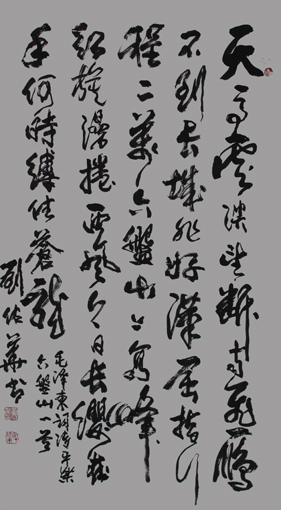 天高雲淡望斷南飛鴈
不到長城非好漢屈指行
程二萬六盤山上高峰
紅旗漫捲西風今日長纓在
手何時縛住蒼龍
毛澤東詞清平樂
六盤山一首
劉佑華書